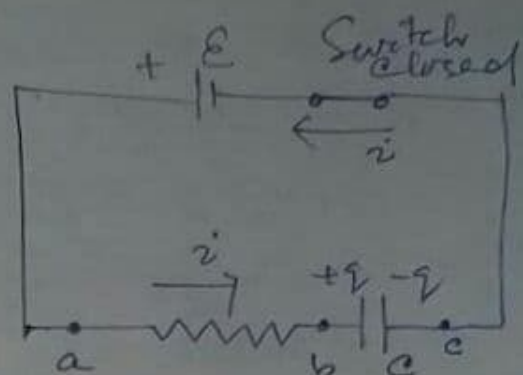 Switch
+ ε closed
i
i +q -q
a b C c